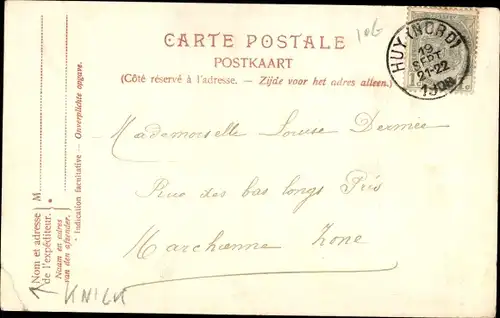 106
CARTE POSTALE
POSTKAART
(Côté réservé à l'adresse. — Zijde voor het adres alleen.)
HUY (NORD)
19
SEPT
21-22
Mademoiselle Louise Dermiée
Rue des bas longs Prés
Marchienne Zone
Nom et adresse
de l'expéditeur.
M
Naam en adres
van den afzender.
* Indication facultative — Onverplichte opgave.
KNICK